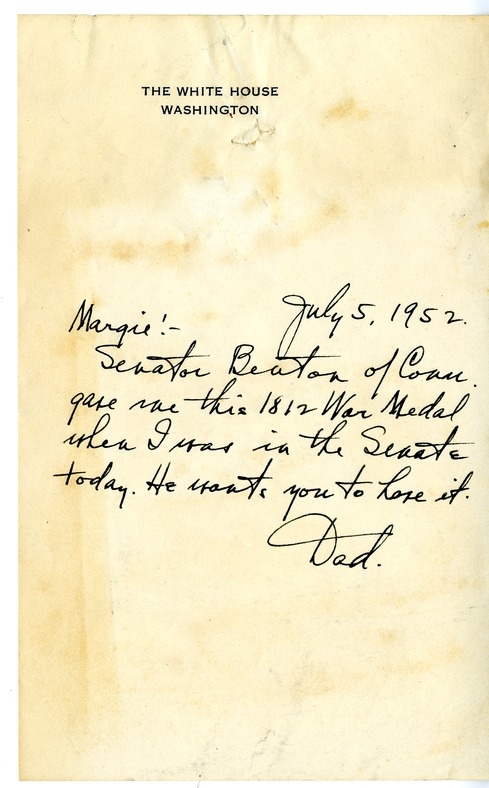 THE WHITE HOUSE
WASHINGTON
July 5, 1952.
Margie!-
Senator Benton of Conn.
gave me this 1812 War Medal
when I was in the Senate
today. He wants you to have it.
Dad.